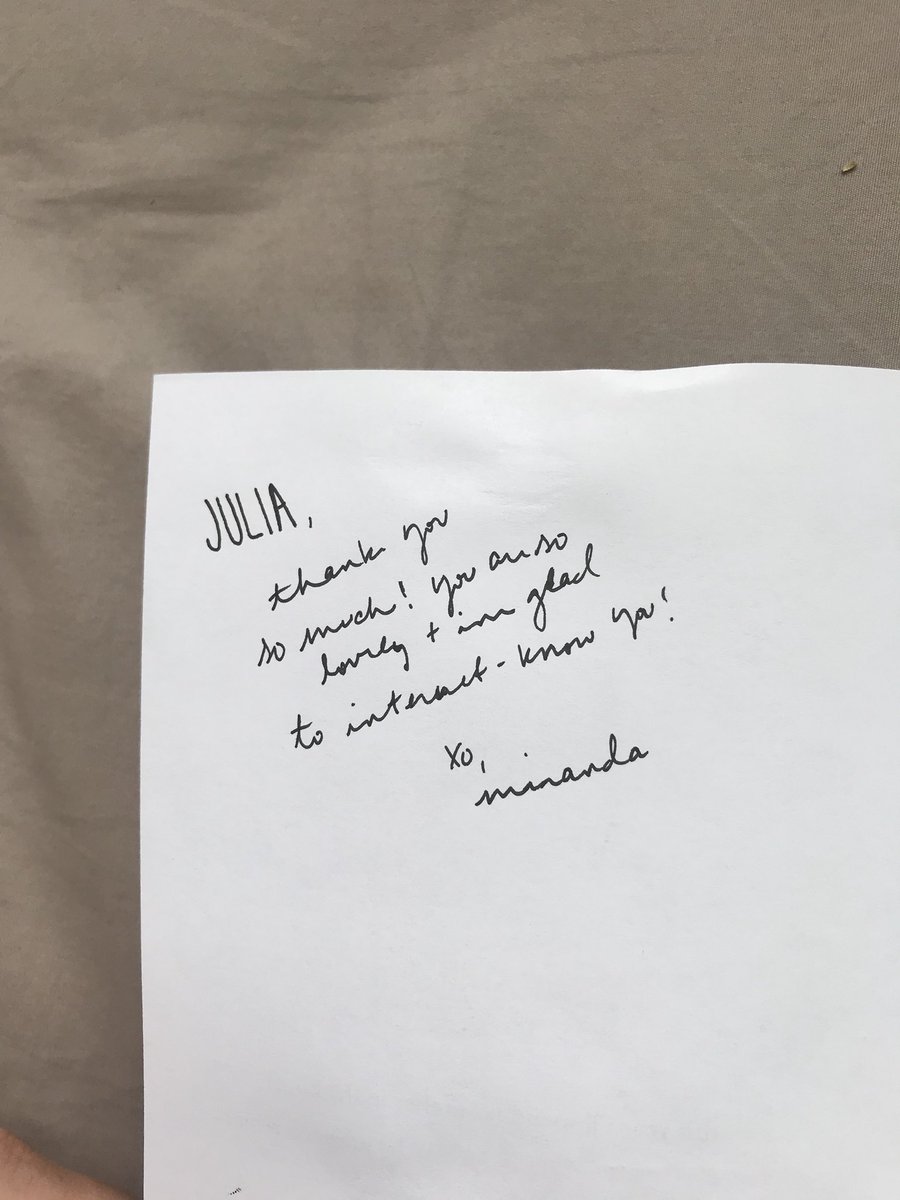 JULIA,
thank you
so much! you are so
lovely + im glad
to interact - know you!
xo,
miranda